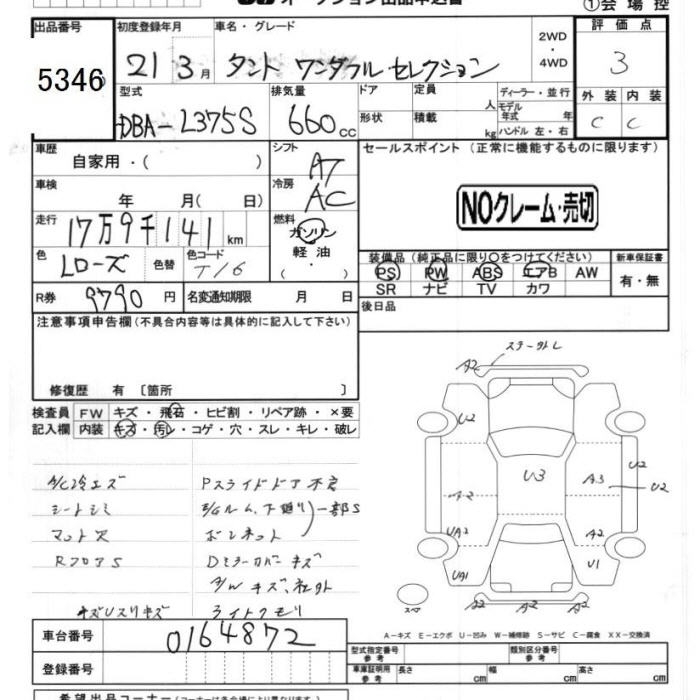 ①会場控
出品番号
5346
初度登録年月
21 3月
車名・グレード
タント ワンダフルセレクション
2WD
・
4WD
評価点
3
型式
DBA-L375S
排気量
660cc
ドア
定員
人
形状
積載
kg
ディーラー・並行
モデル年式 年
ハンドル 左・右
外装 内装
C C
車歴
自家用・( )
シフト
AT
セールスポイント (正常に機能するものに限ります)
車検
年 月( 日)
冷房
AC
NOクレーム・売切
走行
17万9千141km
燃料
ガソリン
軽油
・
色
Lローズ
色替
色コード
T16
装備品(純正品に限り○をつけてください)
PS PW ABS エアB AW
SR ナビ TV カワ
新車保証書
有・無
R券
9790円
名変通知期限 月 日
後日品
注意事項申告欄(不具合内容等は具体的に記入して下さい)
修復歴 有〔箇所 〕
検査員
記入欄
FW キズ・飛石・ヒビ割・リペア跡・×要
内装 キズ・汚レ・コゲ・穴・スレ・キレ・破レ
A/C冷エズ
シートシミ
マット欠
RフロアS
キズUスリキズ
Pスライドドア不良
E/Gルム、下廻り
ボンネット
一部S
Dミラーカバーキズ
A/Wキズ、社外
ライトクモリ
A2
U2
U3
A3
U2
U2
A2
UA2
A2
UA1
U1
スペア
A2 A2 A2
A-キズ E-エクボ U-凹み W-補修跡 S-サビ C-腐食 XX-交換済
車台番号
0164872
登録番号
型式指定番号
参考
類別区分番号
参考
車庫証明用
参考
長さ cm
幅 cm
高さ cm